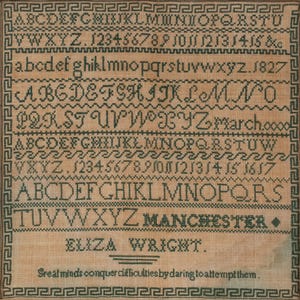 ABCDEFGHIJKLMNNOPQRSTU
VWXYZ. 1234567891011121314 15 &c
abcdefghiklmnopqrstuvwxyz. 1827
ABCDEFGHIJKLMNO
PQRSTUVWXYZ March.xxxx
ABCDEFGHIJKLMNOPQRSTUVW
VXYZ. 1234567891011121314151617
ABCDEFGHIKLMNOPQRS
TUVWXYZ MANCHESTER
ELIZA WRIGHT.
Great minds conquer difficulties by daring to attempt them.